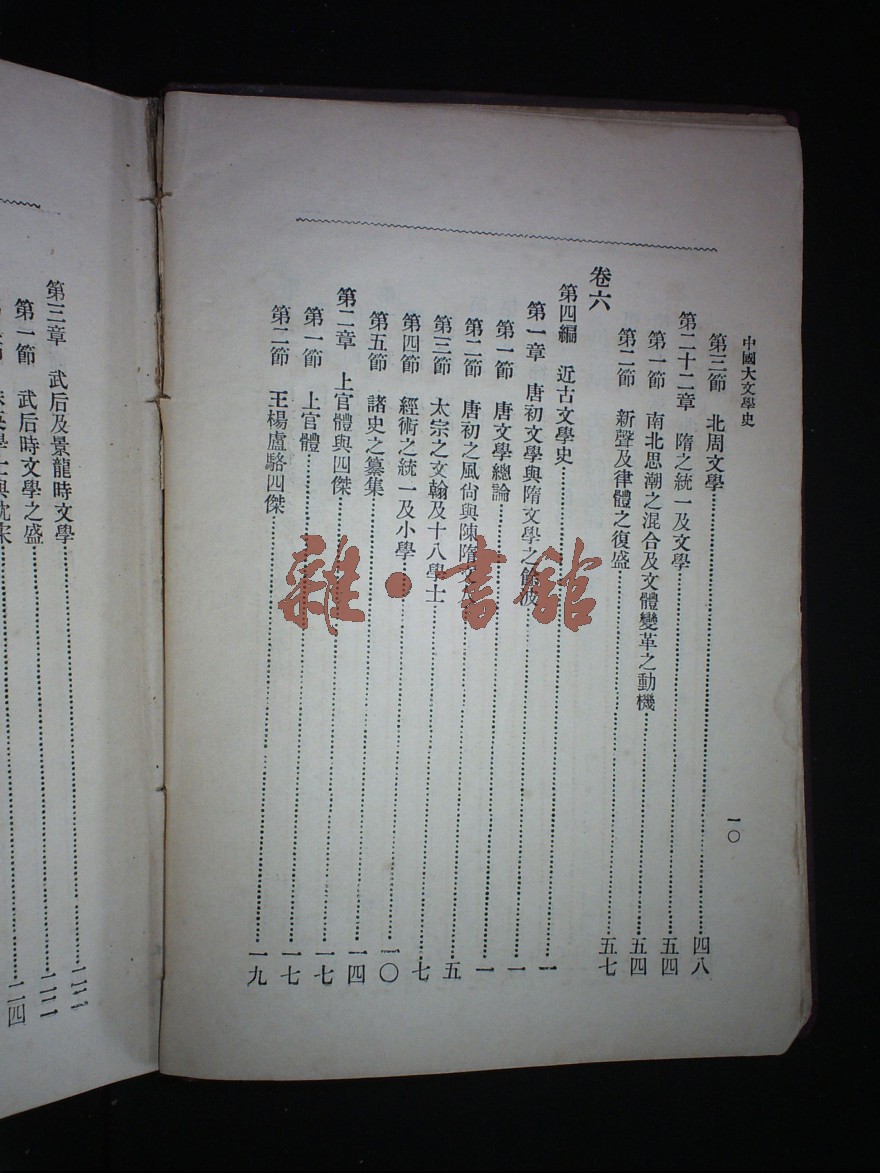 中國大文學史
一〇
第三節 北周文學 四八
第二十二章 隋之統一及文學 五四
第一節 南北思潮之混合及文體變革之動機 五四
第二節 新聲及律體之復盛 五七
卷六
第四編 近古文學史 一
第一章 唐初文學與隋文學之餘波 一
第一節 唐文學總論 一
第二節 唐初之風尙與陳隋文 五
第三節 太宗之文翰及十八學士 七
第四節 經術之統一及小學 一〇
第五節 諸史之纂集 一四
第二章 上官體與四傑 一七
第一節 上官體 一七
第二節 王楊盧駱四傑 一九
第三章 武后及景龍時文學 二二
第一節 武后時文學之盛 二二
學士與沈宋 二四
雜·書館